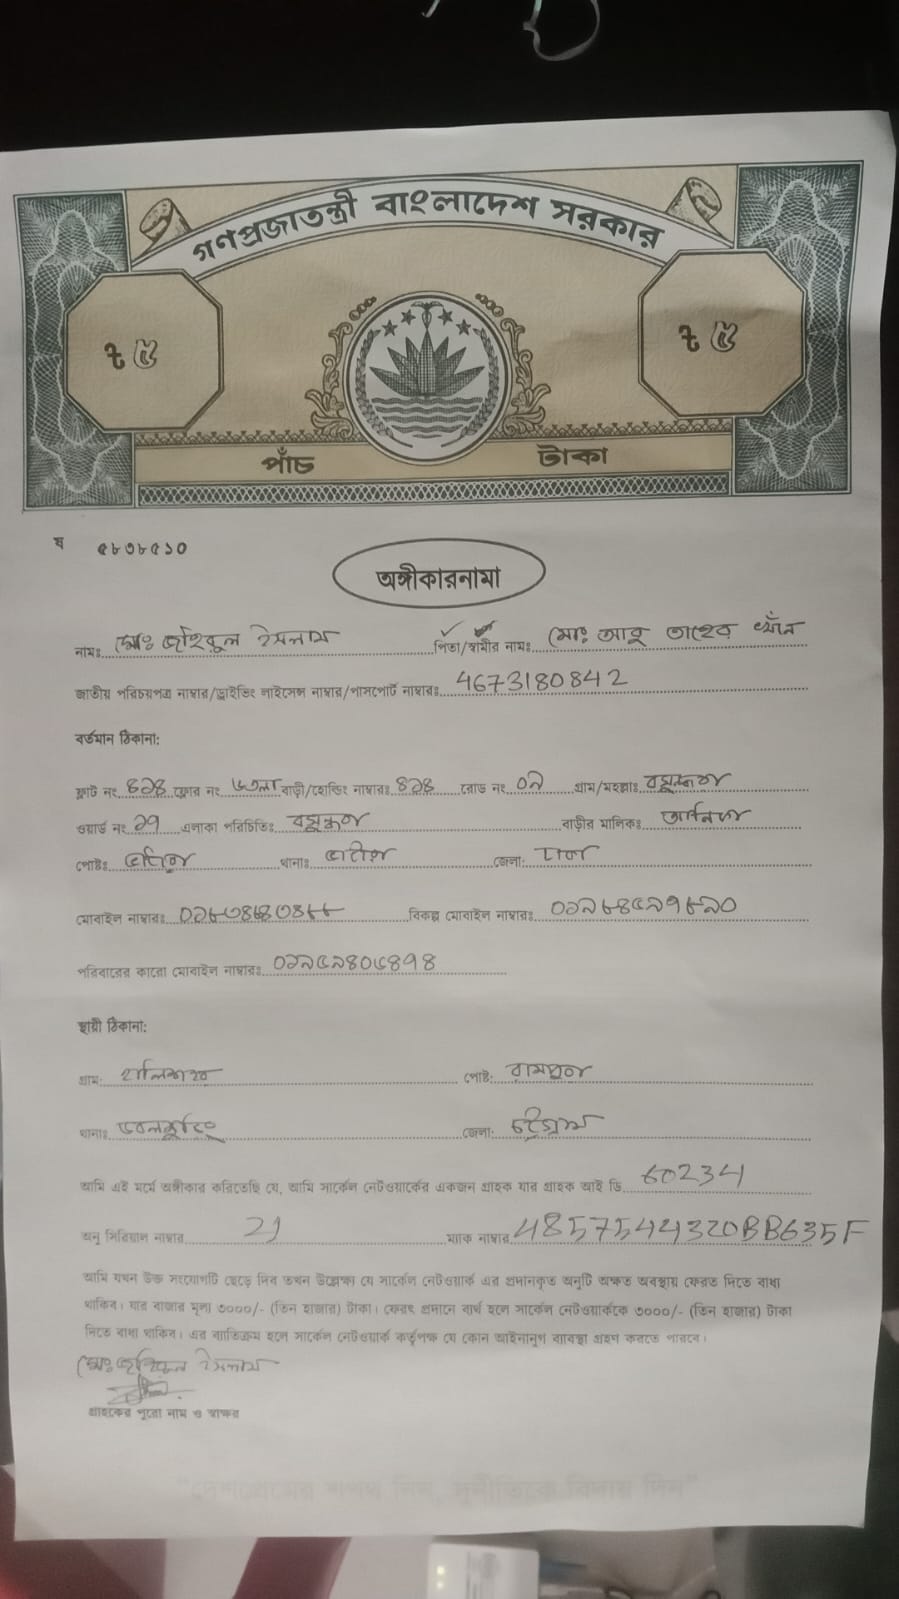 গণপ্রজাতন্ত্রী বাংলাদেশ সরকার
৳ ৫ ৳ ৫
পাঁচ টাকা
ষ ৫৮৩৮৫১০
অঙ্গীকারনামা
নামঃ মোঃ জহিরুল ইসলাম পিতা/স্বামীর নামঃ মোঃ আবু তাহের খাঁন
জাতীয় পরিচয়পত্র নাম্বার/ড্রাইভিং লাইসেন্স নাম্বার/পাসপোর্ট নাম্বারঃ 4673180842
বর্তমান ঠিকানা:
ফ্লাট নং ফ্লোর নং বাড়ী/হোল্ডিং নাম্বারঃ রোড নং ০৯ গ্রাম/মহল্লাঃ বসুন্ধরা
ওয়ার্ড নং এলাকা পরিচিতিঃ বসুন্ধরা বাড়ীর মালিকঃ
পোষ্টঃ থানাঃ জেলা: ঢাকা
মোবাইল নাম্বারঃ বিকল্প মোবাইল নাম্বারঃ
পরিবারের কারো মোবাইল নাম্বারঃ
স্থায়ী ঠিকানা:
গ্রাম: হালিশহর পোষ্ট: রামপুরা
থানাঃ ডবলমুরিং জেলা: চট্টগ্রাম
আমি এই মর্মে অঙ্গীকার করিতেছি যে, আমি সার্কেল নেটওয়ার্কের একজন গ্রাহক যার গ্রাহক আই ডি 60234
অনু সিরিয়াল নাম্বার 21 ম্যাক নাম্বার 4857544320BB635F
আমি যখন উক্ত সংযোগটি ছেড়ে দিব তখন উল্লেক্ষ্য যে সার্কেল নেটওয়ার্ক এর প্রদানকৃত অনুটি অক্ষত অবস্থায় ফেরত দিতে বাধ্য
থাকিব। যার বাজার মূল্য ৩০০০/- (তিন হাজার) টাকা। ফেরৎ প্রদানে ব্যর্থ হলে সার্কেল নেটওয়ার্ককে ৩০০০/- (তিন হাজার) টাকা
দিতে বাধ্য থাকিব। এর ব্যতিক্রম হলে সার্কেল নেটওয়ার্ক কর্তৃপক্ষ যে কোন আইনানুগ ব্যাবস্থা গ্রহণ করতে পারবে।
মোঃ জহিরুল ইসলাম
গ্রাহকের পুরো নাম ও স্বাক্ষর